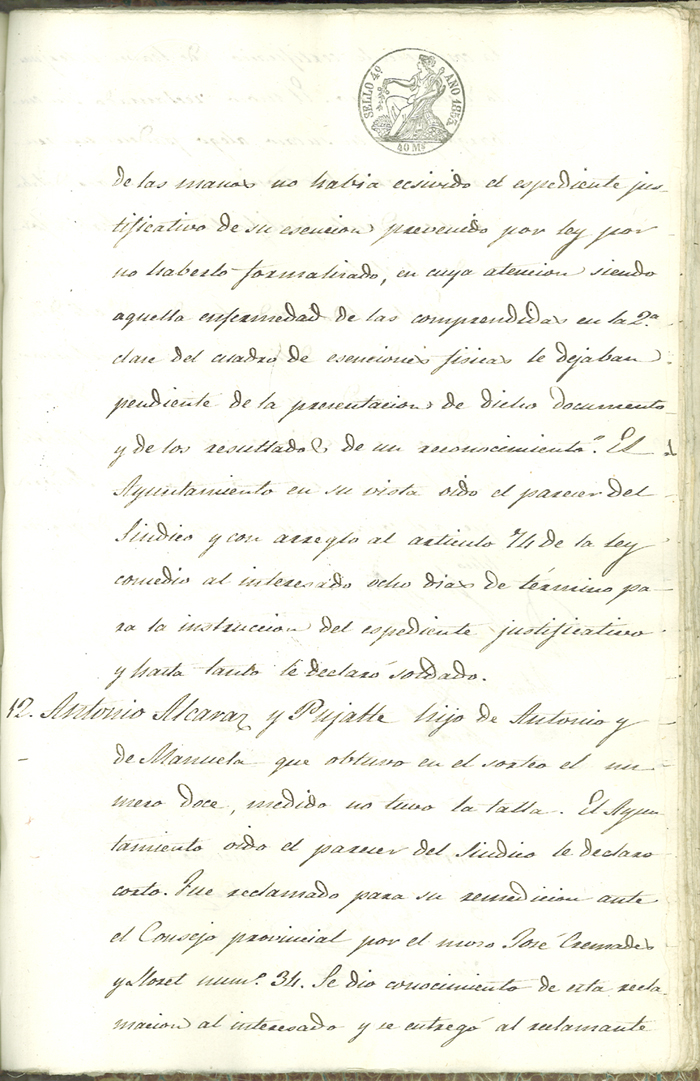 SELLO 4º AÑO 1855.
40 Mˢ
de las manos no habia recivido el espediente jus-
tificativo de su esencion prevenido por ley por
no haberlo formalizado, en cuya atencion siendo
aquella enfermedad de las comprendidas en la 2.ª
clase del cuadro de esenciones fisicas le dejaban
pendiente de la presentacion de dicho documento
y de los resultados de un reconocimiento". El
Ayuntamiento en su vista oido el parecer del
Sindico y con arreglo al articulo 74 de la ley
concedio al interesado ocho dias de término pa-
ra la instruccion del espediente justificativo
y hasta tanto le declaró soldado.
12. Antonio Alcaraz y Pujalte hijo de Antonio y
de Manuela que obtuvo en el sorteo el nu-
mero doce, medido no tuvo la talla. El Ayun
tamiento oido el parecer del Sindico le declaro
corto. Fue reclamado para su remedicion ante
el Consejo provincial por el mozo José Cremades
y Lloret num.º 34. Se dio conocimiento de esta recla-
macion al interesado y se entregó al reclamante